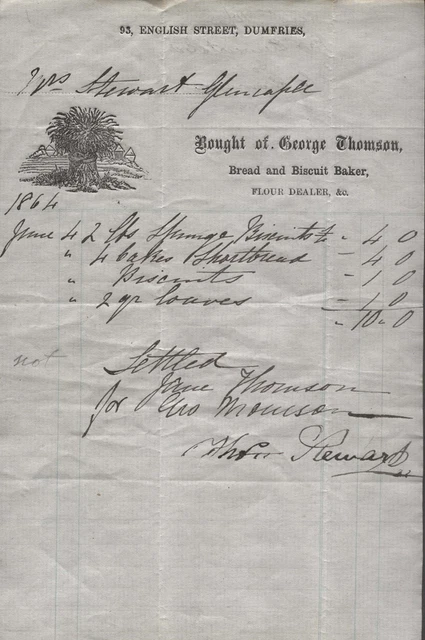 93, ENGLISH STREET, DUMFRIES,
Mrs Stewart Glencaple
Bought of George Thomson,
Bread and Biscuit Baker,
FLOUR DEALER, &c.
1864
June 4 2 lbs Spunge Biscuits - 4 0
" 4 Cakes Shortbread - 4 0
" Biscuits - 1 0
" 2 qr loaves - 1 0
" 10 " 0
not
Settled
Jane Thomson
for Geo Thomson
Stewart